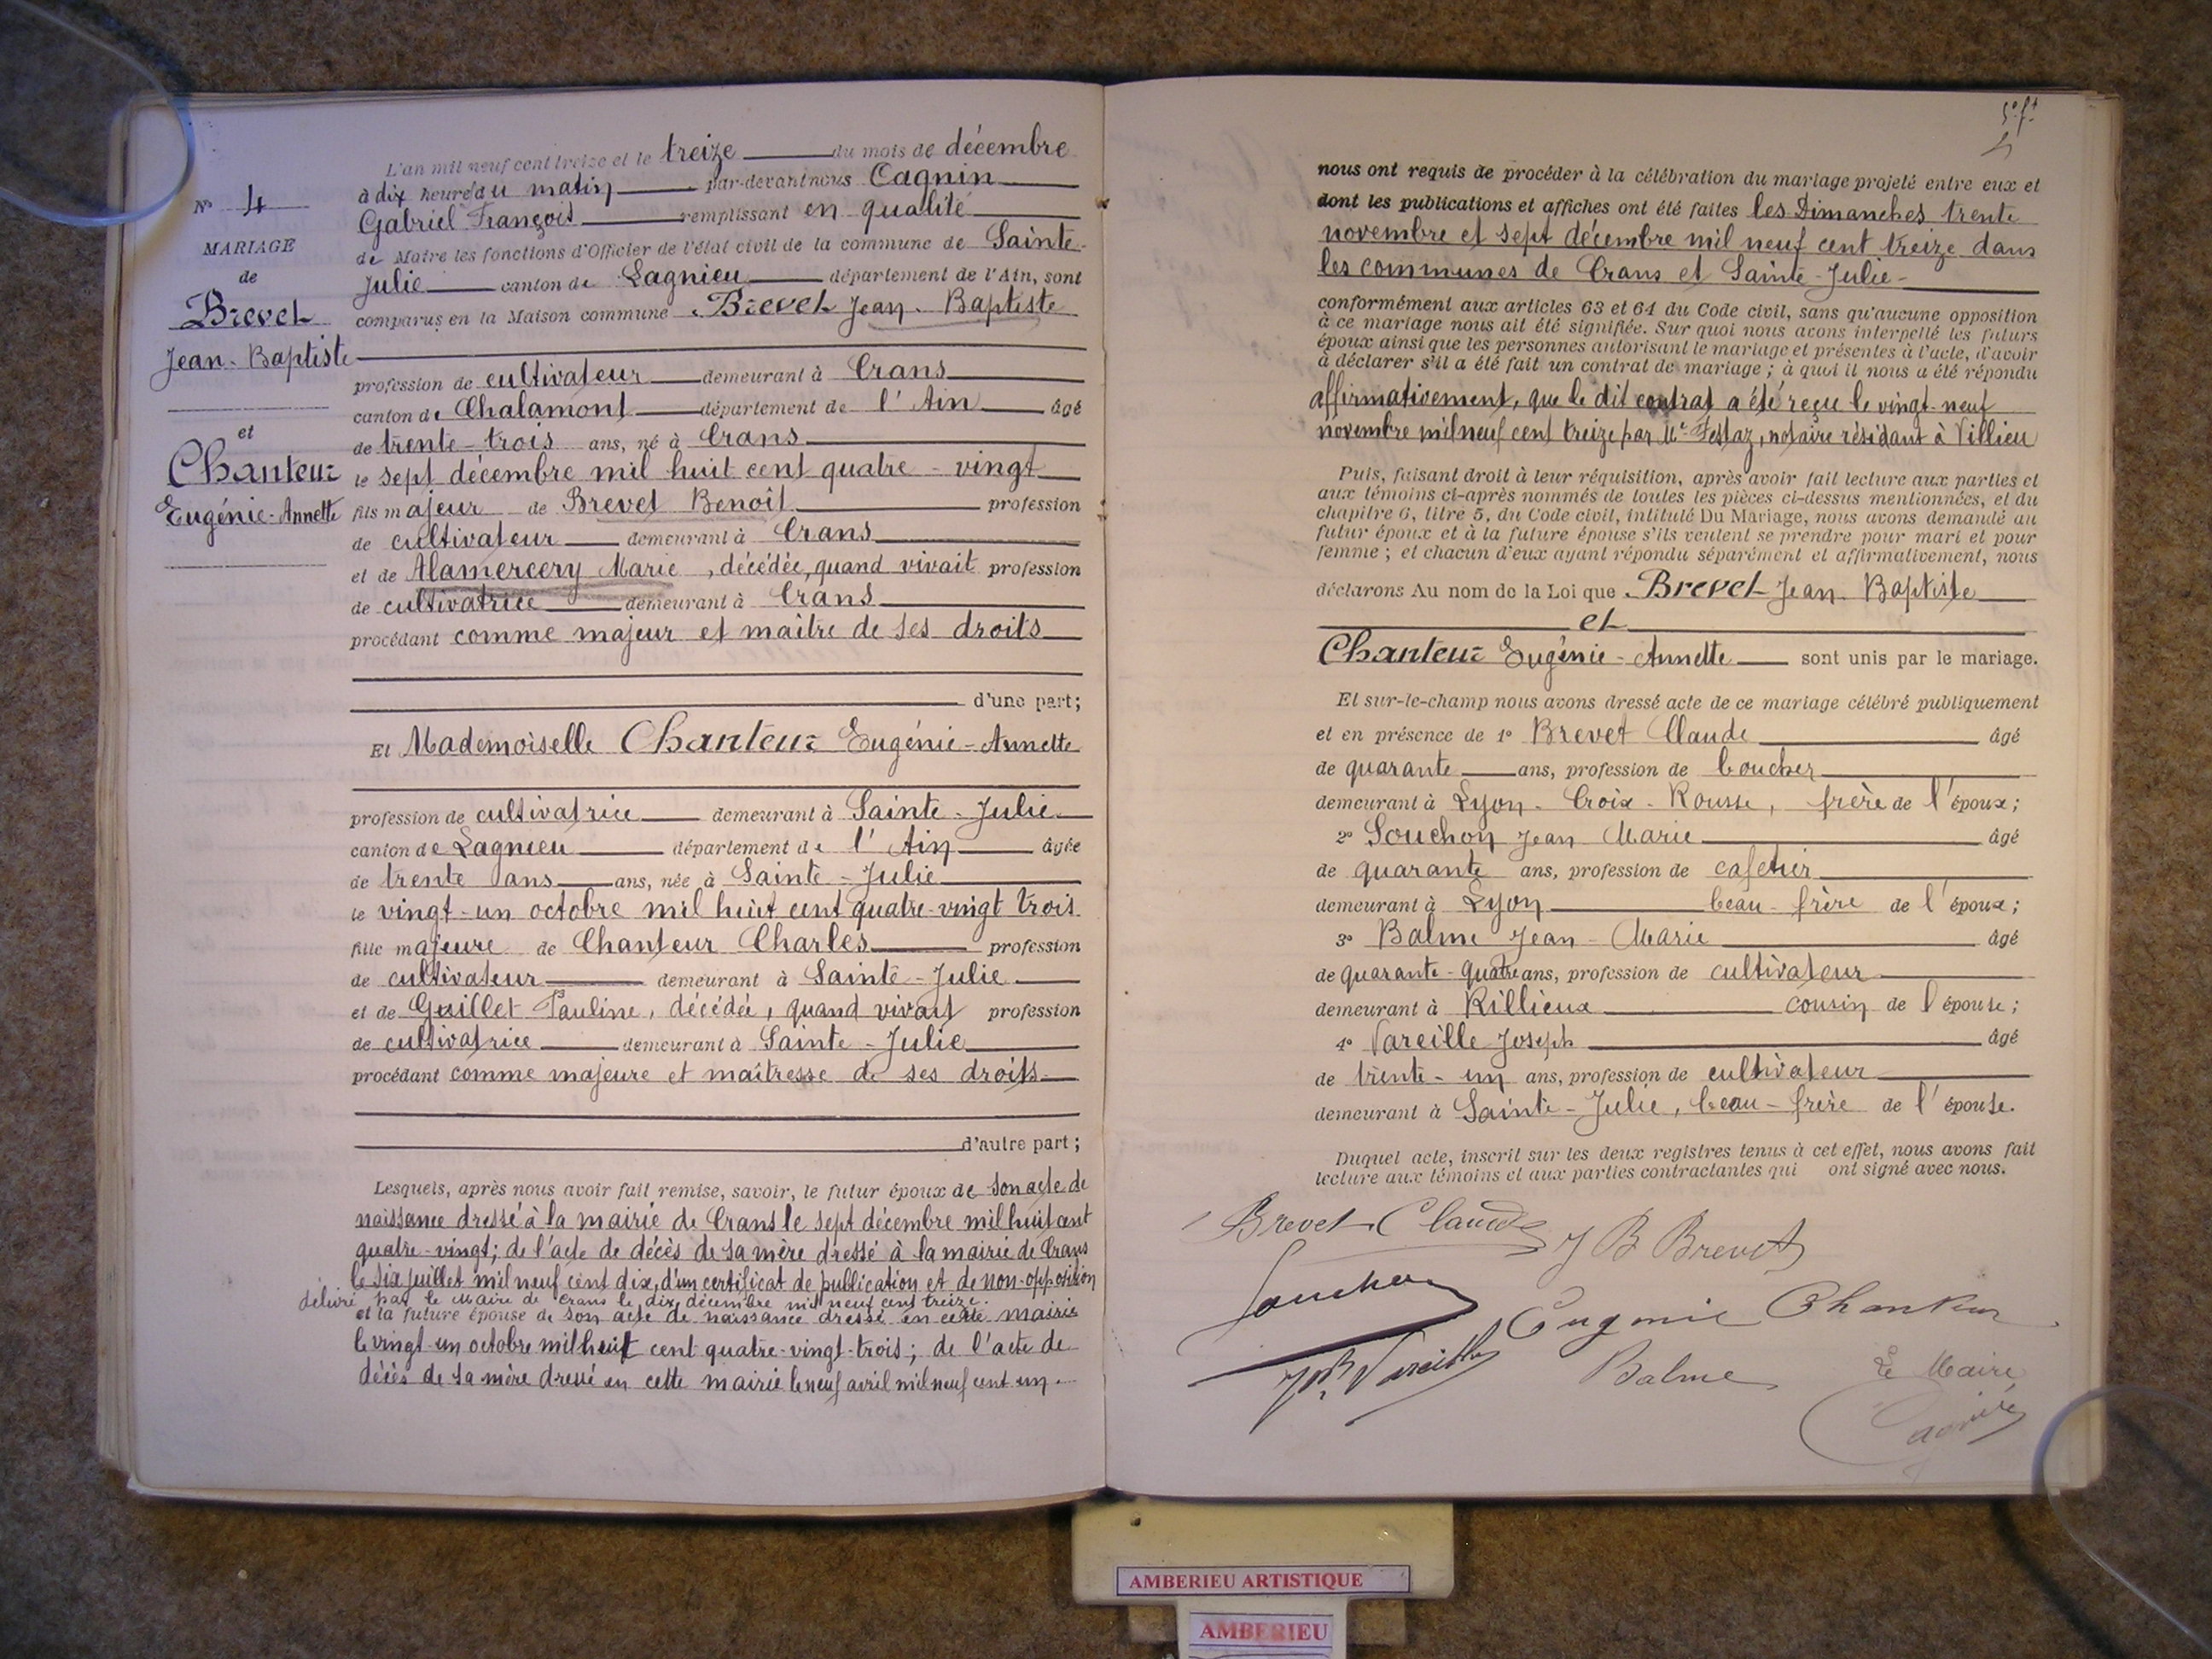 N° 4
MARIAGE
de
Brevet
Jean-Baptiste
et
Chanteur
Eugénie-Annette
L'an mil neuf cent treize et le treize du mois de décembre
à dix heures du matin par-devant nous Cagnin
Gabriel François remplissant en qualité
de Maire les fonctions d'Officier de l'état civil de la commune de Sainte-
Julie canton de Lagnieu département de l'Ain, sont
comparus en la Maison commune Brevet Jean-Baptiste
profession de cultivateur demeurant à Crans
canton de Chalamont département de l'Ain âgé
de trente-trois ans, né à Crans
le sept décembre mil huit cent quatre-vingt
fils majeur de Brevet Benoît profession
de cultivateur demeurant à Crans
et de Alamercery Marie, décédée, quand vivait profession
de cultivatrice demeurant à Crans
procédant comme majeur et maître de ses droits
d'une part;
Et Mademoiselle Chanteur Eugénie-Annette
profession de cultivatrice demeurant à Sainte-Julie
canton de Lagnieu département de l'Ain âgée
de trente ans ans, née à Sainte-Julie
le vingt-un octobre mil huit cent quatre-vingt trois
fille majeure de Chanteur Charles profession
de cultivateur demeurant à Sainte-Julie
et de Guillet Pauline, décédée, quand vivait profession
de cultivatrice demeurant à Sainte-Julie
procédant comme majeure et maîtresse de ses droits
d'autre part;
Lesquels, après nous avoir fait remise, savoir, le futur époux de son acte de
naissance dressé à la mairie de Crans le sept décembre mil huit cent
quatre-vingt; de l'acte de décès de sa mère dressé à la mairie de Crans
le six juillet mil neuf cent dix, d'un certificat de publication et de non-opposition
délivré par le Maire de Crans le dix décembre mil neuf cent treize.
et la future épouse de son acte de naissance dressé en cette mairie
le vingt-un octobre mil huit cent quatre-vingt-trois; de l'acte de
décès de sa mère dressé en cette mairie le neuf avril mil neuf cent un.
nous ont requis de procéder à la célébration du mariage projeté entre eux et
dont les publications et affiches ont été faites les Dimanches trente
novembre et sept décembre mil neuf cent treize dans
les communes de Crans et Sainte-Julie
conformément aux articles 63 et 64 du Code civil, sans qu'aucune opposition
à ce mariage nous ait été signifiée. Sur quoi nous avons interpellé les futurs
époux ainsi que les personnes autorisant le mariage et présentes à l'acte, d'avoir
à déclarer s'il a été fait un contrat de mariage; à quoi il nous a été répondu
affirmativement, que le dit contrat a été reçu le vingt-neuf
novembre mil neuf cent treize par Me Festaz, notaire résidant à Villieu
Puis, faisant droit à leur réquisition, après avoir fait lecture aux parties et
aux témoins ci-après nommés de toutes les pièces ci-dessus mentionnées, et du
chapitre 6, titre 5, du Code civil, intitulé Du Mariage, nous avons demandé au
futur époux et à la future épouse s'ils veulent se prendre pour mari et pour
femme; et chacun d'eux ayant répondu séparément et affirmativement, nous
déclarons Au nom de la Loi que Brevet Jean-Baptiste
et
Chanteur Eugénie-Annette sont unis par le mariage.
Et sur-le-champ nous avons dressé acte de ce mariage célébré publiquement
et en présence de 1° Brevet Claude âgé
de quarante ans, profession de boucher
demeurant à Lyon-Croix-Rousse, frère de l'époux;
2° Souchon Jean Marie âgé
de quarante ans, profession de cafetier
demeurant à Lyon beau-frère de l'époux;
3° Balme Jean-Marie âgé
de quarante-quatre ans, profession de cultivateur
demeurant à Rillieux cousin de l'épouse;
4° Vareille Joseph âgé
de trente-un ans, profession de cultivateur
demeurant à Sainte-Julie, beau-frère de l'épouse.
Duquel acte, inscrit sur les deux registres tenus à cet effet, nous avons fait
lecture aux témoins et aux parties contractantes qui ont signé avec nous.
Brevet Claude J B Brevet
Souchon
Eugenie Chanteur
Vareille Balme Le Maire
Cagnin
AMBERIEU ARTISTIQUE
AMBERIEU